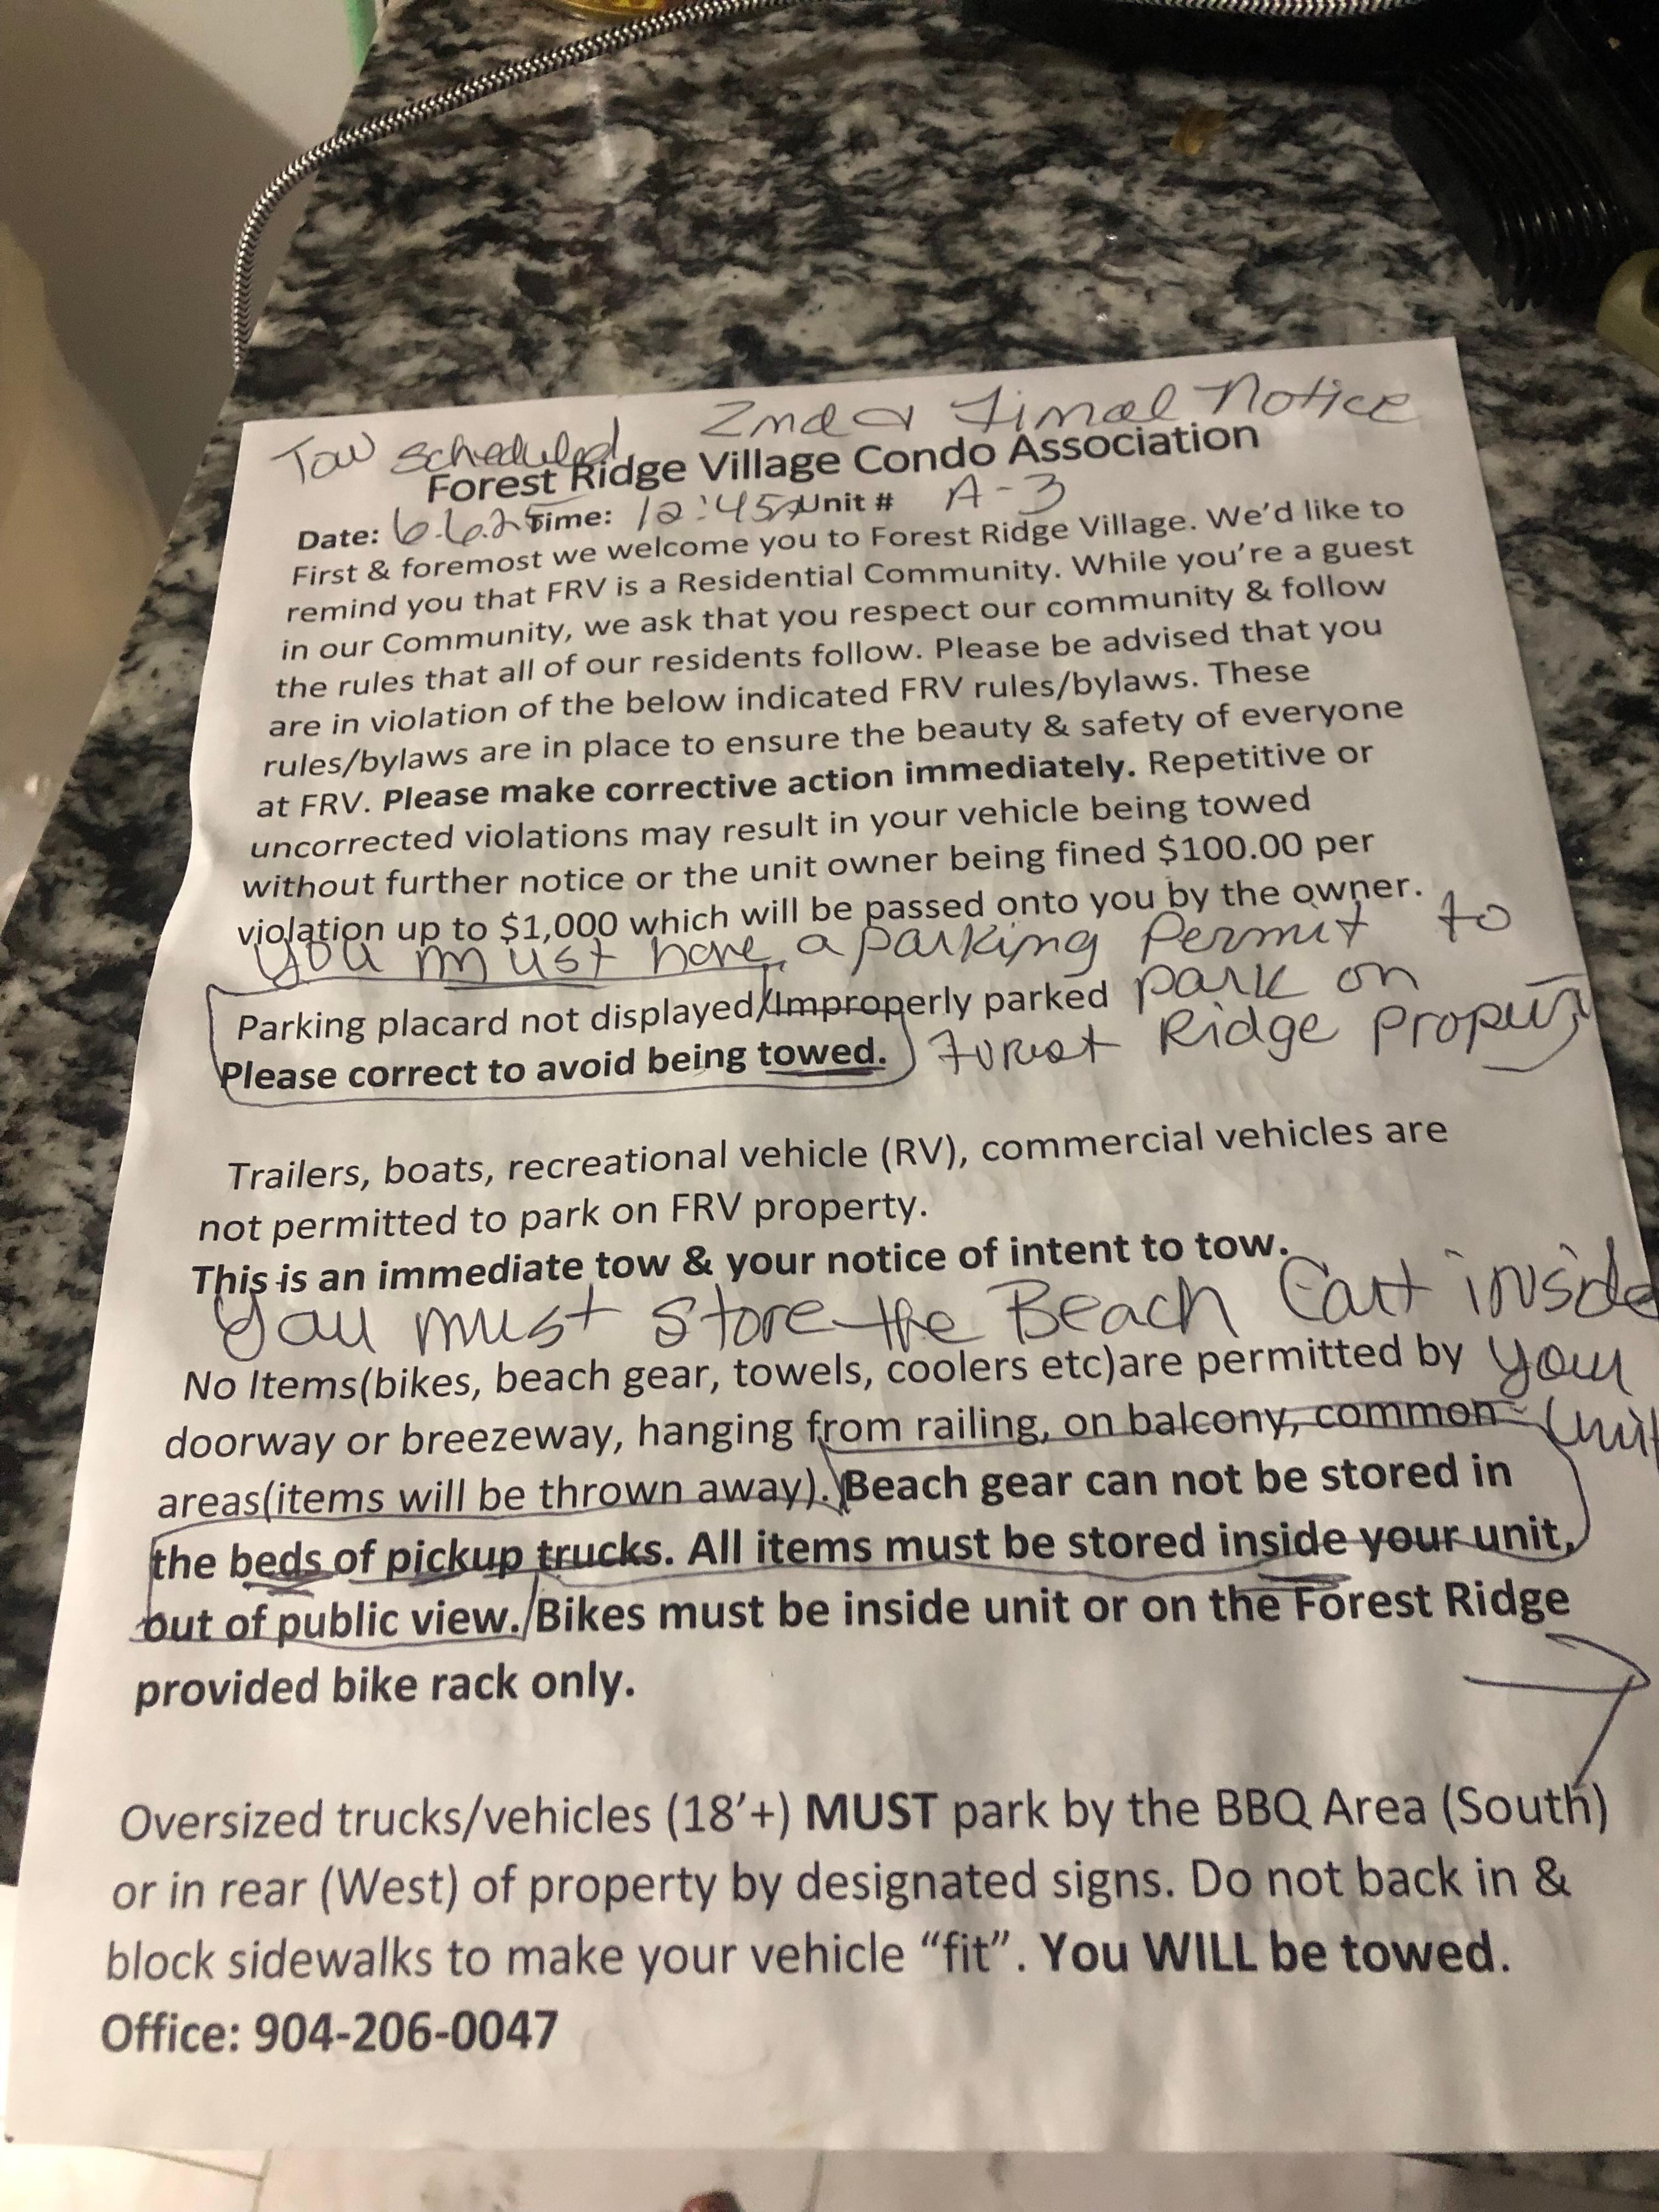 2nd & Final Notice
Tow scheduled
Forest Ridge Village Condo Association
Date: 6.6.25 Time: 12:45 Unit # A-3
First & foremost we welcome you to Forest Ridge Village. We'd like to
remind you that FRV is a Residential Community. While you're a guest
in our Community, we ask that you respect our community & follow
the rules that all of our residents follow. Please be advised that you
are in violation of the below indicated FRV rules/bylaws. These
rules/bylaws are in place to ensure the beauty & safety of everyone
at FRV. Please make corrective action immediately. Repetitive or
uncorrected violations may result in your vehicle being towed
without further notice or the unit owner being fined $100.00 per
violation up to $1,000 which will be passed onto you by the owner.
You must have a parking Permit to
park on
Forest Ridge Property
Parking placard not displayed/Improperly parked
Please correct to avoid being towed.
Trailers, boats, recreational vehicle (RV), commercial vehicles are
not permitted to park on FRV property.
This is an immediate tow & your notice of intent to tow.
You must store the Beach Cart inside
your
Unit
No Items(bikes, beach gear, towels, coolers etc)are permitted by
doorway or breezeway, hanging from railing, on balcony, common
areas(items will be thrown away). Beach gear can not be stored in
the beds of pickup trucks. All items must be stored inside your unit,
out of public view. Bikes must be inside unit or on the Forest Ridge
provided bike rack only.
Oversized trucks/vehicles (18'+) MUST park by the BBQ Area (South)
or in rear (West) of property by designated signs. Do not back in &
block sidewalks to make your vehicle “fit”. You WILL be towed.
Office: 904-206-0047